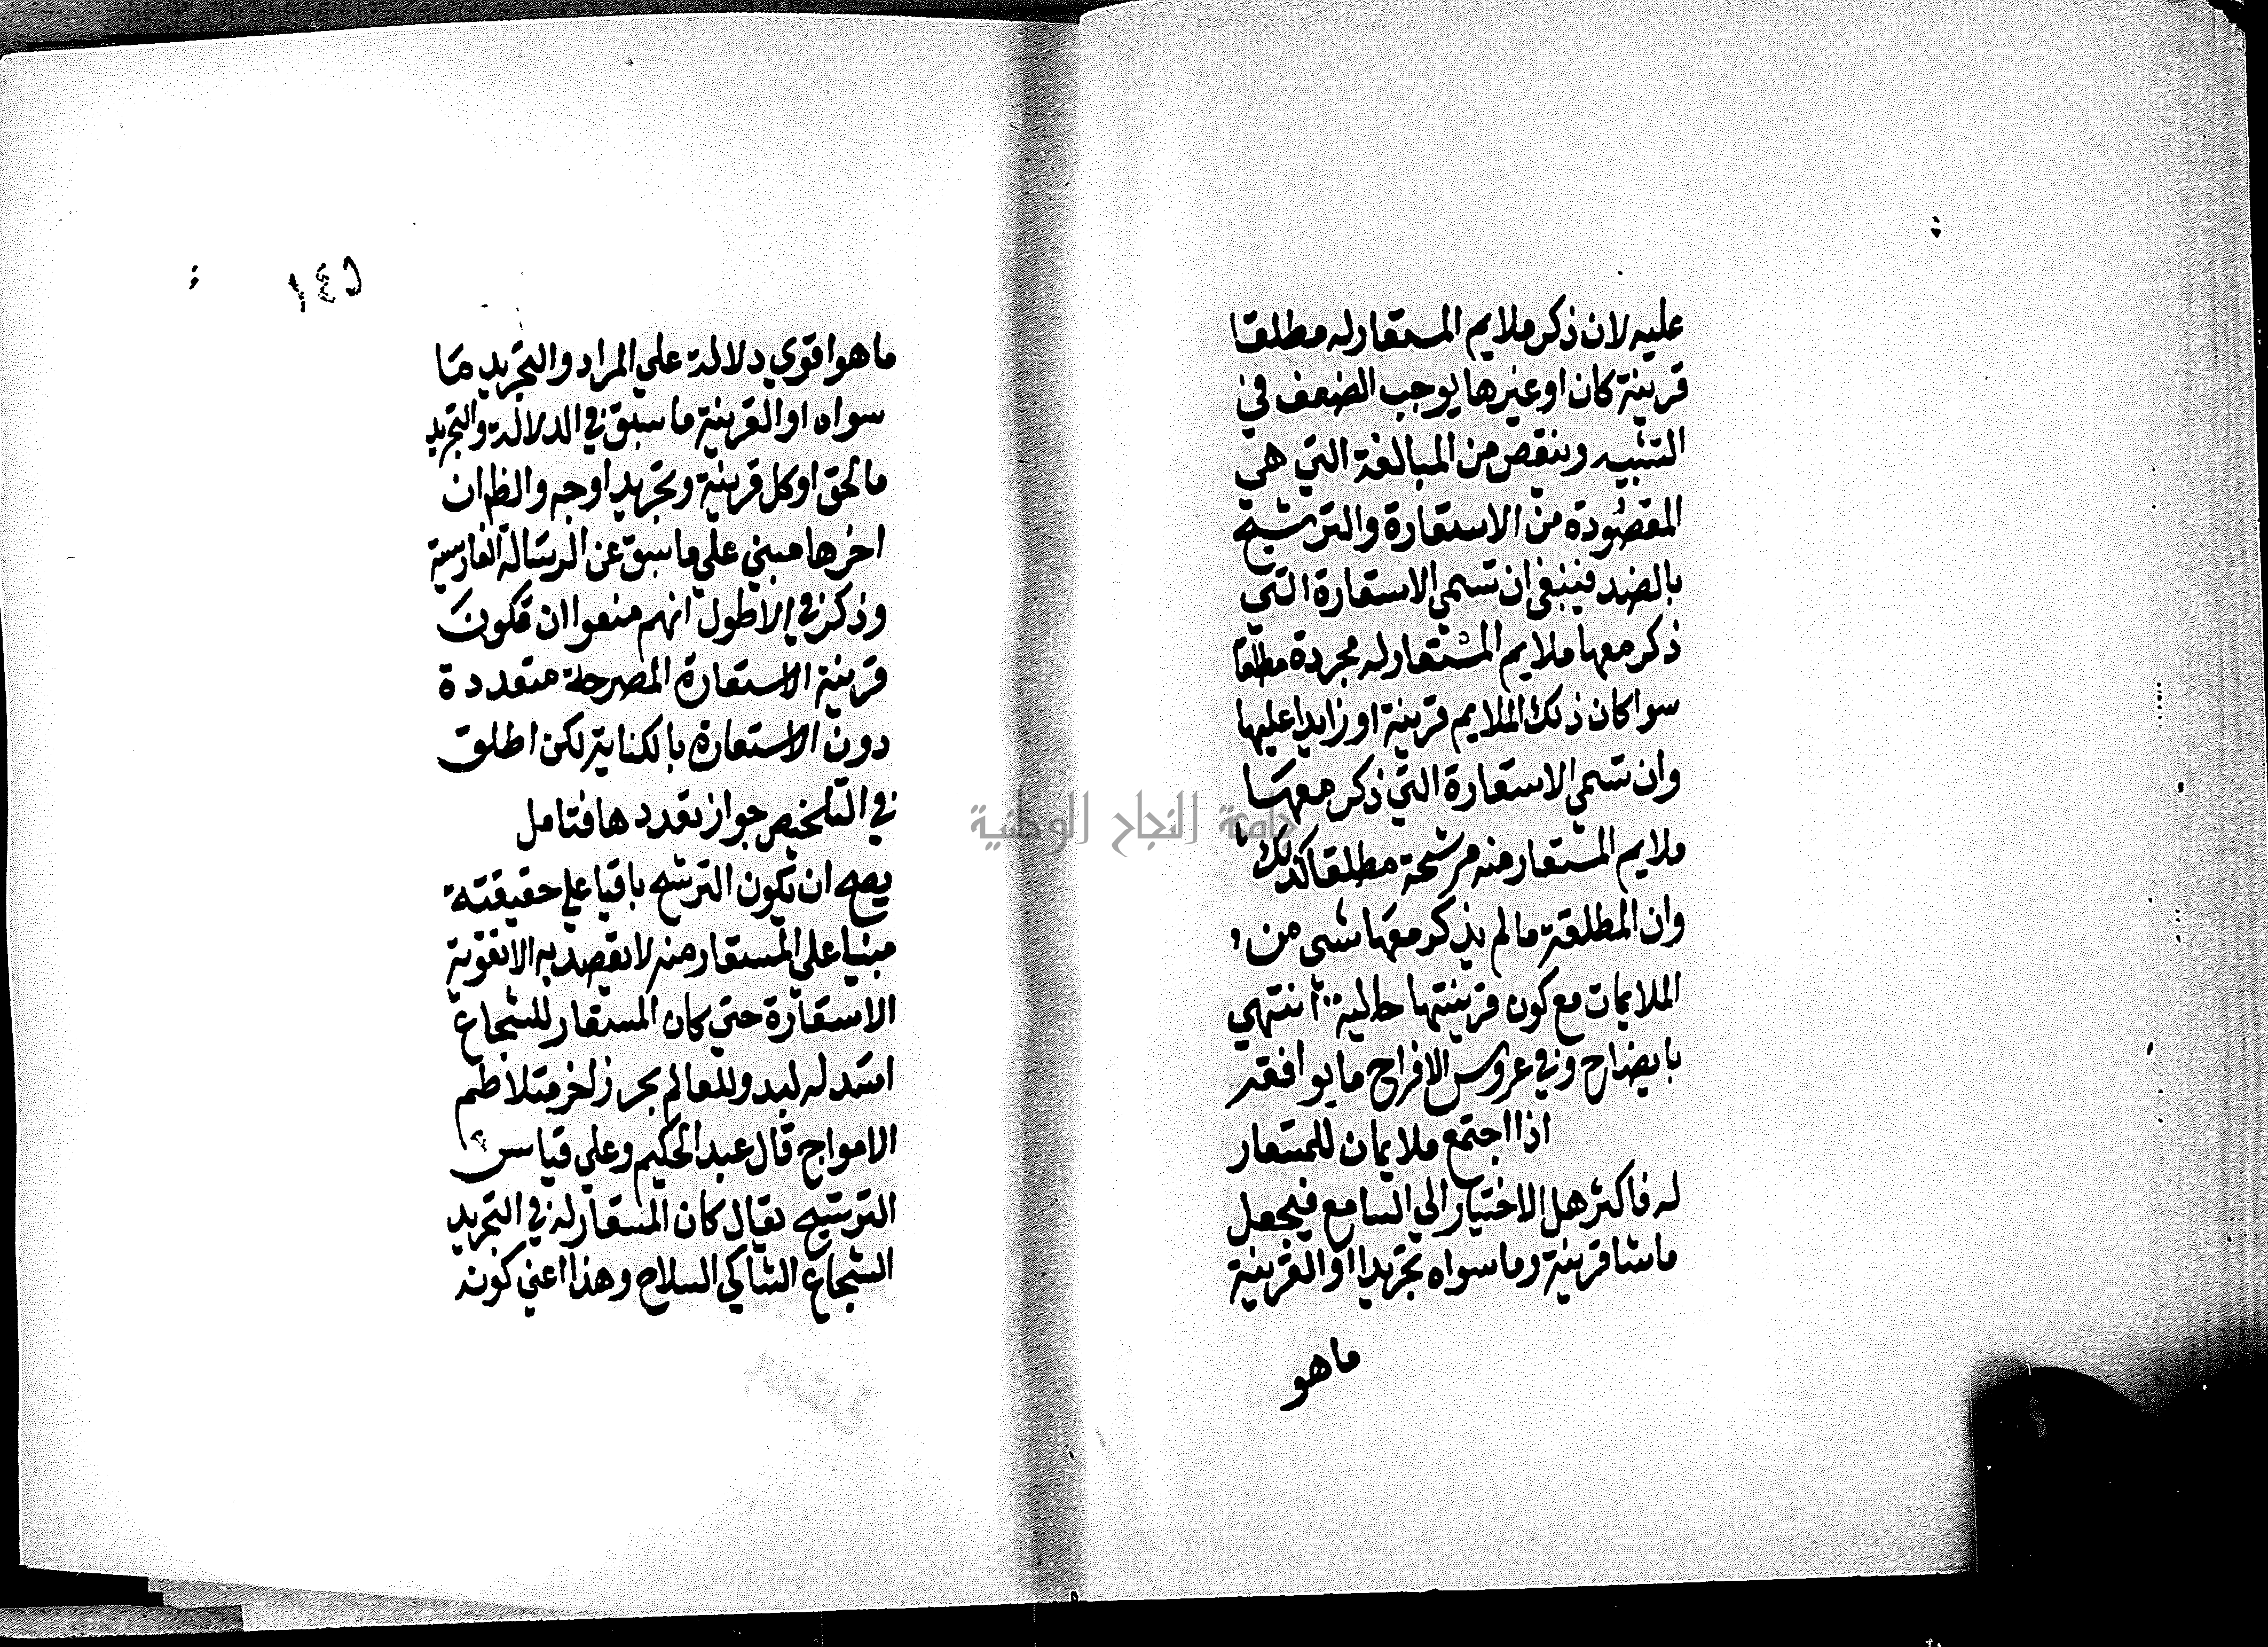 عليه لان ذكر ملايم المستعار له مطلقا
قرينة كان او غيرها يوجب الضعف في
التشبيه وينقص من المبالغة التي هي
المقصودة من الاستعارة والترشيح
بالضد فينبغي ان تسمى الاستعارة التي
ذكر معها ملايم المستعار له مجردة مطلقا
سوا كان ذلك الملايم قرينة او زايدا عليها
وان تسمى الاستعارة التي ذكر معها
ملايم المستعار منه مرشحة مطلقا كذلك
وان المطلقة ما لم يذكر معها شى من
الملايمات مع كون قرينتها حالية انتهي
بايضاح وفي عروس الافراح ما يوافقه
اذا اجتمع ملايمان للمستعار
له فاكثر هل الاختيار الي السامع فيجعل
ما شا قرينة وما سواه تجريدا او القرينة
ما هو
١٤٥
ما هو اقوي دلالة علي المراد والتجريد ما
سواه او القرينة ما سبق في الدلالة والتجريد
ما لحق او كل قرينة وتجريد اوجه والظ ان
اخرها مبني علي ما سبق عن الرسالة الفارسية
وذكر في الاطول انهم منعوا ان تكون
قرينة الاستعارة المصرحة متعددة
دون الاستعارة بالكناية لكن اطلق
في التلخيص جواز تعددها فتامل
يصح ان تكون الترشيح باقيا علي حقيقته
مبنيا علي المستعار منه لا يقصد به الا تقوية
الاستعارة حتي كان المستعار للشجاع
اسد له لبد وللعالم بحر زاخر متلاطم
الامواج قال عبد الحكيم وعلي قياس
الترشيح يقال كان المستعار له في التجريد
الشجاع الشاكي السلاح وهذا اعني كونه
جامعة النجاح الوطنية